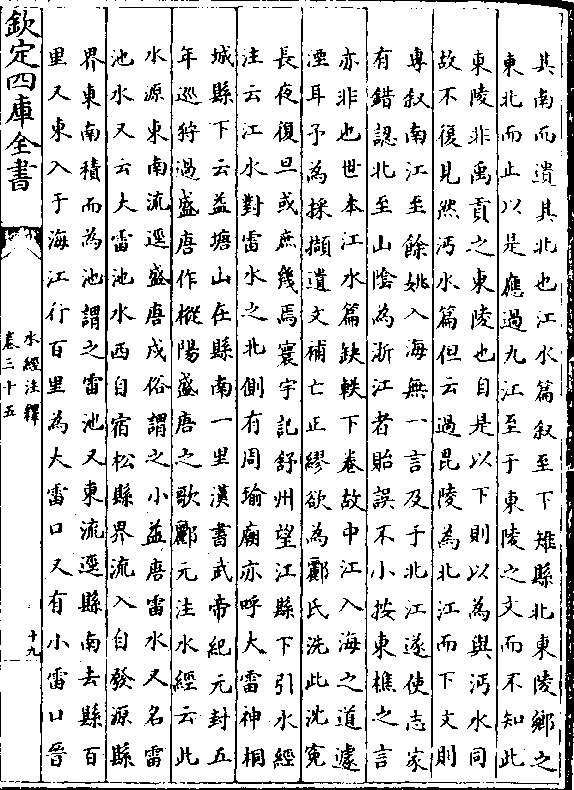 其南而遺其北也江水篇叙至下雉縣北東陵鄉之
東北而止以是應過九江至于東陵之文而不知此
東陵非禹貢之東陵也自是以下則以為與沔水同
故不復見然沔水篇但云過毘陵為北江而下文則
專叙南江至餘姚入海無一言及于北江遂使志家
有錯認北至山陰為浙江者貽誤不小按東樵之言
亦非也世本江水篇缺軼下卷故中江入海之道遽
湮耳予為採擷遺文補亡正繆欲為酈氏洗此沈寃
長夜復旦或庶幾焉寰宇記舒州望江縣下引水經
注云江水對雷水之北側有周瑜廟亦呼大雷神桐
城縣下云益塘山在縣南一里漢書武帝紀元封五
年巡狩過盛唐作樅陽盛唐之歌酈元注水經云此
水源東南流逕盛唐戍俗謂之小益唐雷水又名雷
池水又云大雷池水西自宿松縣界流入自發源縣
界東南積而為池謂之雷池又東流逕縣南去縣百
里又東入于海江行百里為大雷口又有小雷口晉
欽定四庫全書
水經注釋
卷三十五
十九